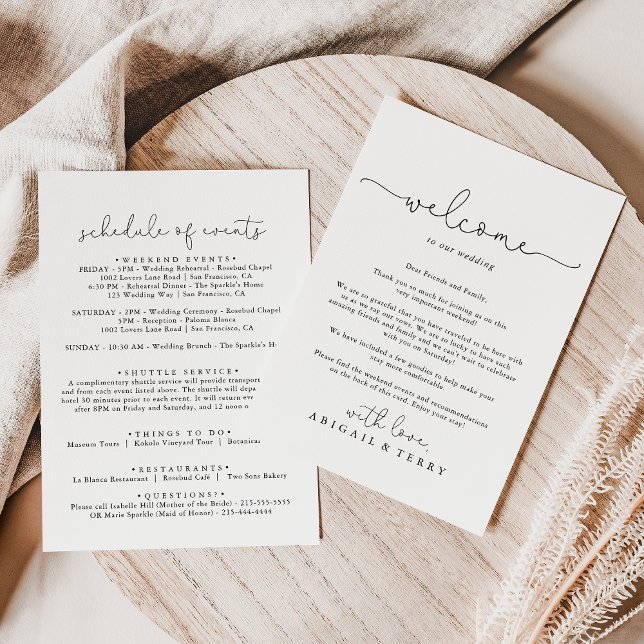 schedule of events
• WEEKEND EVENTS •
FRIDAY - 5PM - Wedding Rehearsal - Rosebud Chapel
1002 Lovers Lane Road | San Francisco, CA
6:30 PM - Rehearsal Dinner - The Sparkle's Home
123 Wedding Way | San Francisco, CA
SATURDAY - 2PM - Wedding Ceremony - Rosebud Chap
5PM - Reception - Paloma Blanca
1002 Lovers Lane Road | San Francisco, CA
SUNDAY - 10:30 AM - Wedding Brunch - The Sparkle's H
• SHUTTLE SERVICE •
A complimentary shuttle service will provide transport
and from each event listed above. The shuttle will depa
hotel 30 minutes prior to each event. It will return eve
after 8PM on Friday and Saturday, and 12 noon o
• THINGS TO DO •
Museum Tours | Kokolo Vineyard Tour | Botanical
• RESTAURANTS •
La Blanca Restaurant | Rosebud Café | Two Sons Bakery
• QUESTIONS? •
Please call Isabelle Hill (Mother of the Bride) - 215-555-5555
OR Marie Sparkle (Maid of Honor) - 215-444-4444
welcome
to our wedding
Dear Friends and Family,
Thank you so much for joining us on this
very important weekend!
We are so grateful that you have traveled to be here with
us as we say our vows. We are so lucky to have such
amazing friends and family and we can't wait to celebrate
with you on Saturday!
We have included a few goodies to help make your
stay more comfortable.
Please find the weekend events and recommendations
on the back of this card. Enjoy your stay!
with love,
ABIGAIL & TERRY